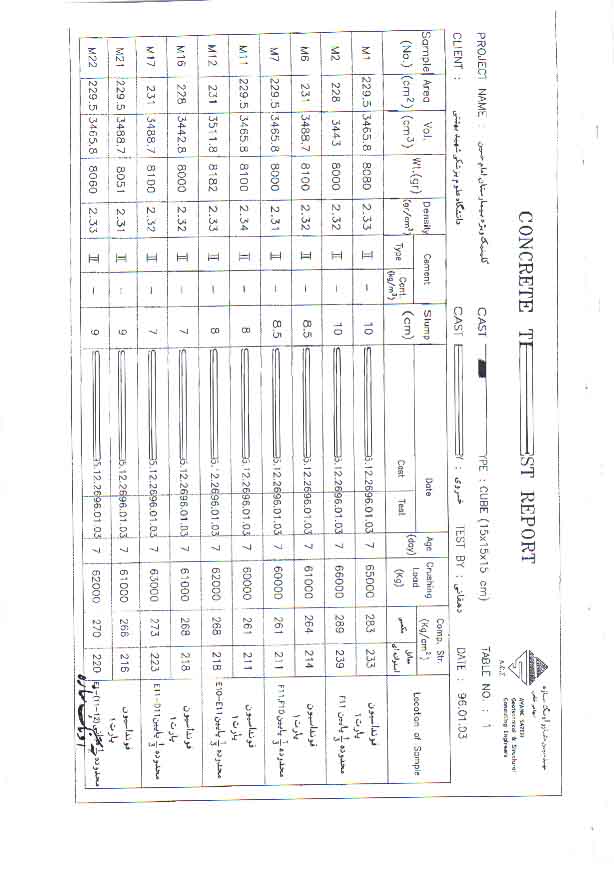 مهندسین مشاور آمانگ سازه
AMANG SAZEH
Geotechnical & Structural
Consulting Engineers
CONCRETE TE ST REPORT
PROJECT NAME : CAST YPE : CUBE (15x15x15 cm) TABLE NO. : 1
CLIENT : دانشگاه علوم پزشکی شهید بهشتی CAST Y : خسروی TEST BY : دهقانی DATE : 96.01.03
Sample (No.) Area (cm2) Vol. (cm3) Wt.(gr) Density (gr/cm3) Cement Type Cont. (kg/m3) Slump (cm) Date Cast Test Age (day) Crushing Load (Kg) Comp. Str. (Kg/cm2) مکعبی Location of Sample
M1 229.5 3465.8 8080 2.33 II - 10 5.12.26 96.01.03 7 65000 283 233 فونداسیون
M2 228 3443 8000 2.32 II - 10 5.12.26 96.01.03 7 66000 289 239 محدوده F11 پایین 1/3
M6 231 3488.7 8100 2.32 II - 8.5 5.12.26 96.01.03 7 61000 264 214 فونداسیون
M7 229.5 3465.8 8000 2.31 II - 8.5 5.12.26 96.01.03 7 60000 261 211 محدوده F11,F10 پایین 1/3
M11 229.5 3465.8 8100 2.34 II - 8 5.12.26 96.01.03 7 60000 261 211 فونداسیون
M12 231 3511.8 8182 2.33 II - 8 5.12.26 96.01.03 7 62000 268 218 محدوده E10-E11 پایین 1/3
M16 228 3442.8 8000 2.32 II - 7 5.12.26 96.01.03 7 61000 268 218 فونداسیون
M17 231 3488.7 8100 2.32 II - 7 5.12.26 96.01.03 7 63000 273 223 محدوده E11-D11 پایین 1/3
M21 229.5 3488.7 8051 2.31 II - 9 5.12.26 96.01.03 7 61000 266 216 فونداسیون
M22 229.5 3465.8 8060 2.33 II - 9 5.12.26 96.01.03 7 62000 270 220 محدوده